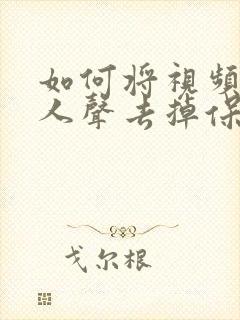 如何将視頻
人聲去掉保
戈尔根